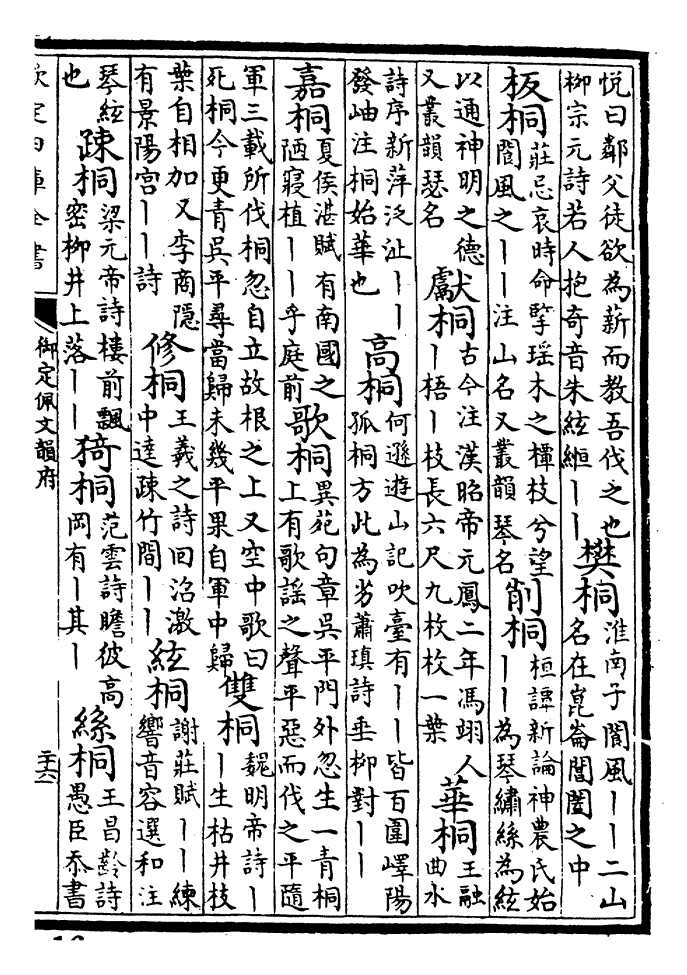 悅曰鄰父徒欲為薪而教吾伐之也
柳宗元詩若人抱奇音朱絃緪｜｜
樊桐
淮南子閬風｜｜二山
名在崑崙閶闔之中
板桐
莊忌哀時命擥瑶木之橝枝兮望
閬風之｜｜注山名又叢韻琴名
削桐
桓譚新論神農氏始
｜｜為琴繩絲為絃
以通神明之德
又叢韻瑟名
獻桐
古今注漢昭帝元鳳二年馮翊人
｜梧｜枝長六尺九枚枚一葉
華桐
王融
曲水
詩序新萍泛沚｜｜
發岫注桐始華也
高桐
何遜遊山記吹臺有｜｜皆百圍嶧陽
孤桐方此為劣蕭瑱詩垂柳對｜｜
嘉桐
夏侯湛賦有南國之
陋寢植｜｜乎庭前
歌桐
異苑句章吳平門外忽生一青桐
上有歌謡之聲平惡而伐之平隨
軍三載所伐桐忽自立故根之上又空中歌曰
死桐今更青吳平尋當歸未幾平果自軍中歸
雙桐
魏明帝詩｜
｜生枯井枝
葉自相加又李商隱
有景陽宫｜｜詩
修桐
王羲之詩回沼激
中逵疎竹間｜｜
絃桐
謝莊賦｜｜練
響音容選和注
琴絃
也
疎桐
梁元帝詩樓前飄
密柳井上落｜｜
猗桐
范雲詩瞻彼高
岡有｜其｜
絲桐
王昌齡詩
愚臣忝書
欽定四庫全書
御定佩文韻府
二十六